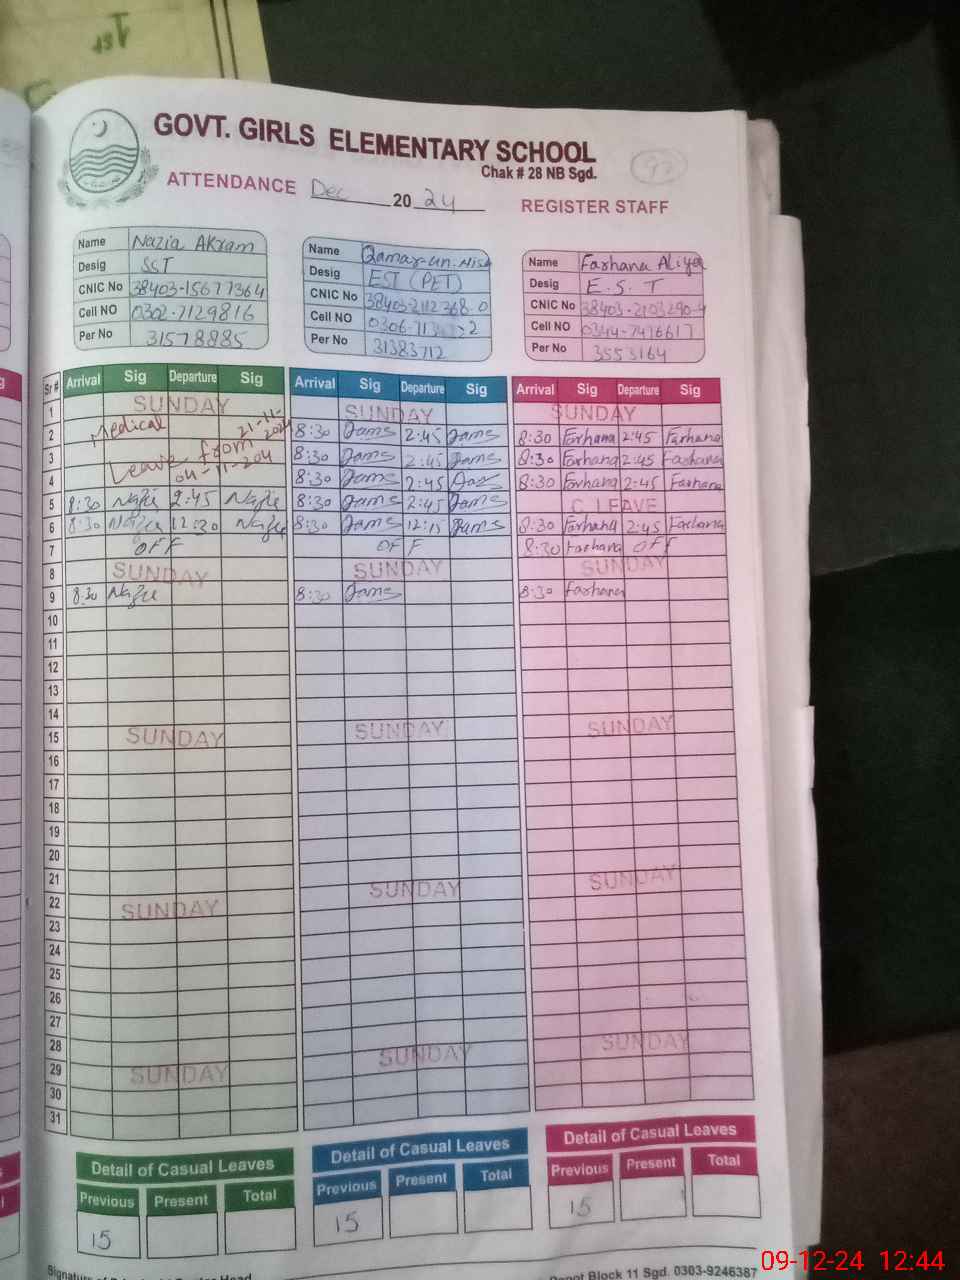 1st
GOVT. GIRLS ELEMENTARY SCHOOL
Chak # 28 NB Sgd.
92
ATTENDANCE Dec 2024 REGISTER STAFF
Name Nazia Akram
Desig SST
CNIC No 38403-15677364
Cell NO 0302-7129816
Per No 31578885
Name Qamar-un-Nisa
Desig EST (PET)
CNIC No 38403-2112368-0
Cell NO 0306-71
Per No 31383712
Name Farhana Aliya
Desig E.S.T
CNIC No 38403-2103290-4
Cell NO 0344-7476617
Per No 3553164
Sr # Arrival Sig Departure Sig Arrival Sig Departure Sig Arrival Sig Departure Sig
1 SUNDAY SUNDAY SUNDAY
2 Medical 21-11-2024 8:30 Jams 2:45 Jams 8:30 Farhana 2:45 Farhana
3 Leave from 8:30 Jams 2:45 Jams 8:30 Farhana 2:45 Farhana
4 04-11-204 8:30 Jams 2:45 8:30 Farhana 2:45 Farhana
5 8:30 Nazie 2:45 Nazie 8:30 Jams 2:45 Jams C. LEAVE
6 8:30 Nazie 12:30 Nazie 8:30 Jams 12:15 Jams 8:30 Farhana 2:45 Farhana
7 OFF OFF 8:30 Farhana OFF
8 SUNDAY SUNDAY SUNDAY
9 8:30 Nazie 8:30 Jams 8:30 Farhana
10
11
12
13
14
15 SUNDAY SUNDAY SUNDAY
16
17
18
19
20
21
22 SUNDAY SUNDAY SUNDAY
23
24
25
26
27
28
29 SUNDAY SUNDAY SUNDAY
30
31
Detail of Casual Leaves Detail of Casual Leaves Detail of Casual Leaves
Previous Present Total Previous Present Total Previous Present Total
15 15 15
Block 11 Sgd. 0303-9246387
09-12-24 12:44